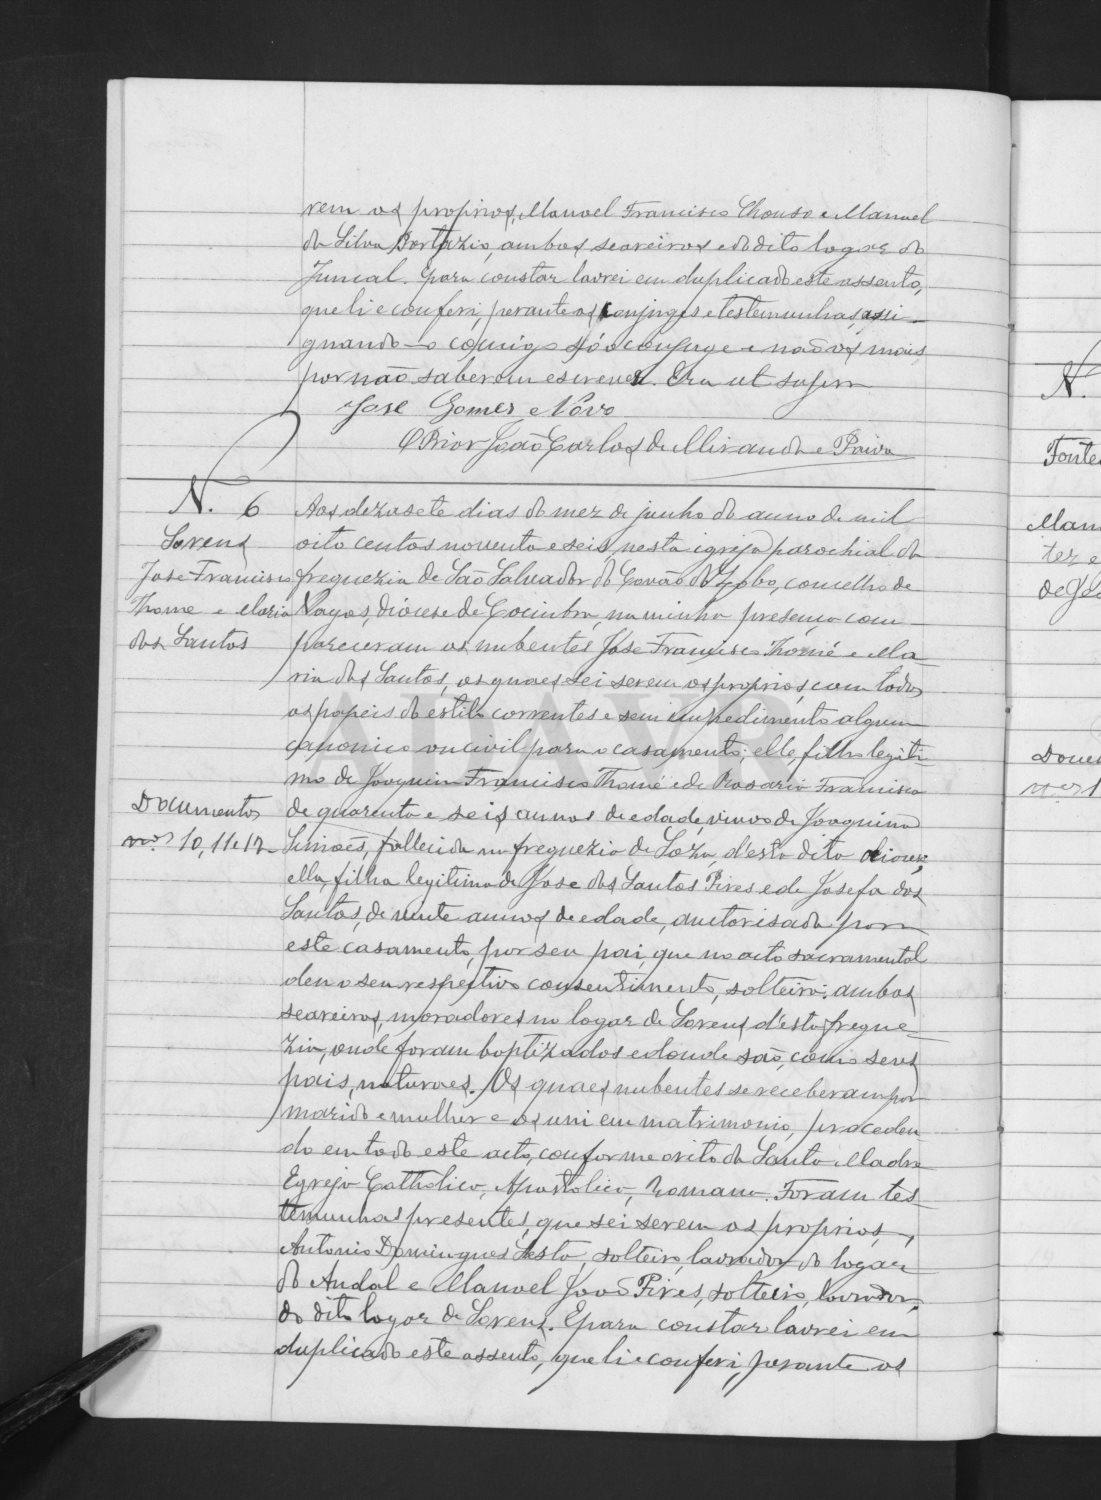 rem os proprios, Manoel Francisco Chouso e Manuel
da Silva Bortazio, ambos seareiros e do dito logar do
Juncal. Para constar lavrei em duplicado este assento,
que li e conferi, perante os conjuges e testemunhas, assi-
gnando-o comigo só o conjuge e não os mais,
por não saberem escrever. Era ut supra
Jose Gomes Novo
O Prior João Carlos de Miranda e Paiva
N. 6
Sorens
Jose Francisco
Thome e Maria
dos Santos
Aos dezasete dias do mez de junho do anno de mil
oito centos noventa e seis, nesta igreja parochial da
freguezia de São Salvador do Covão do Lobo, concelho de
Vagos, diocese de Coimbra, na minha presença com-
pareceram os nubentes José Francisco Thomé e Ma-
ria dos Santos, os quaes sei serem os proprios, com todos
os papeis do estilo correntes e sem impedimento algum
canonico ou civil para o casamento; elle, filho legiti-
mo de Joaquim Francisco Thomé e de Rosaria Francisca
Documentos
nos. 10, 11 e 12
de quarenta e seis annos de edade, viuvo de Joaquina
Simões, fallecida na freguezia de Soza, d'esta dita diocese;
ella, filha legitima de Jose dos Santos Pires e de Josefa dos
Santos, de vinte annos de edade, auctorisada para
este casamento, por seu pai, que no acto sacramental
deu o seu respectivo consentimento, solteira; ambos
seareiros, moradores no logar de Sorens d'esta fregue-
zia, onde foram baptizados e donde são, como seus
pais, naturaes. Os quaes nubentes se receberam por
marido e mulher e os uni em matrimonio, proceden-
do em todo este acto, conforme o rito da Santa Madre
Egreja Catholica, Apostolica, Romana. Foram tes-
temunhas presentes, que sei serem os proprios,
Antonio Domingues Sesta, solteiro, lavrador do logar
do Andal e Manoel João Pires, solteiro, lavrador,
do dito logar de Sorens. E para constar lavrei em
duplicado este assento, que li e conferi, perante os
N.
Fonte
Man
tez e
de Jo
Docu
nos 1
ADAVR